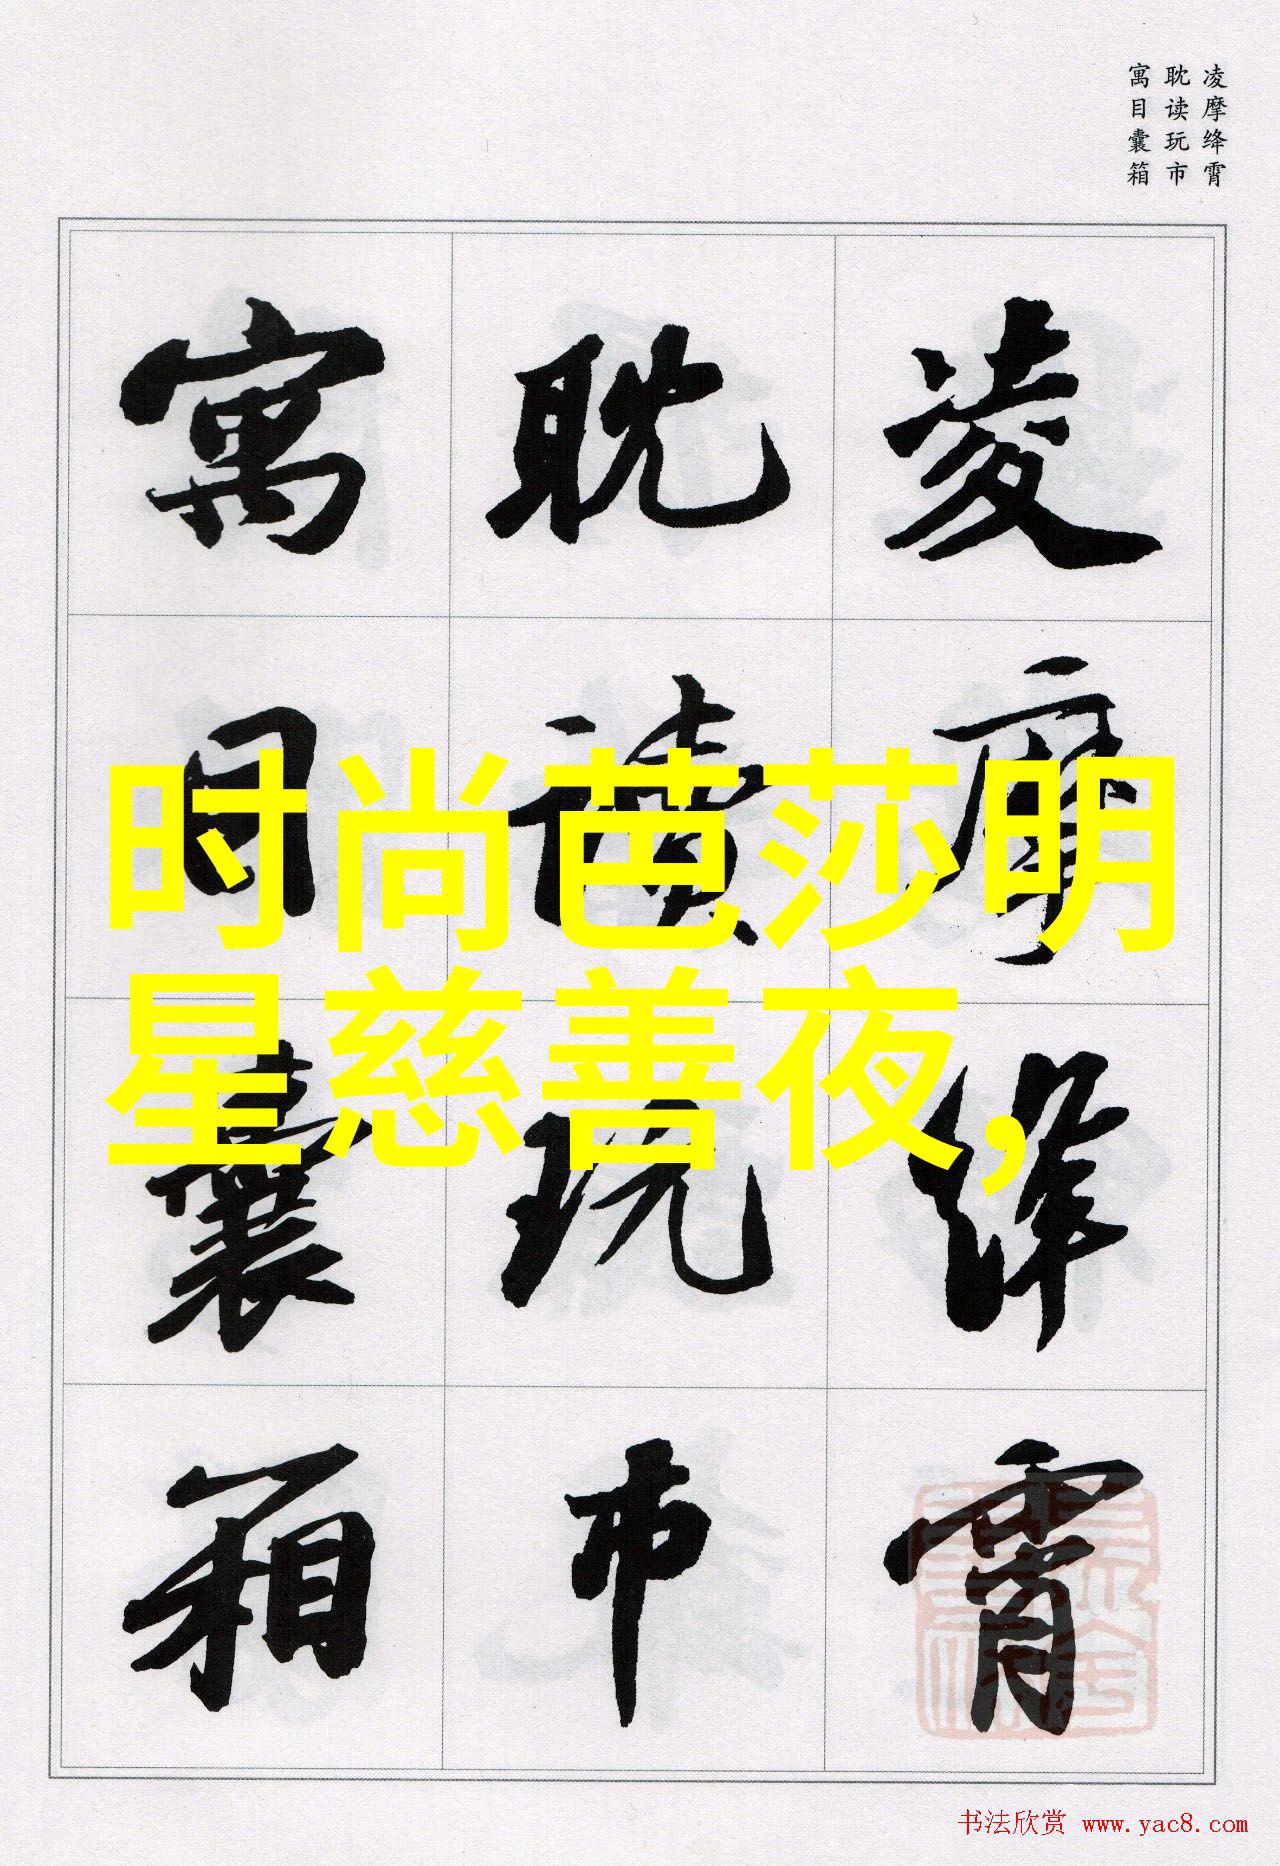 凌摩绛霄
耽读玩市
寓目囊箱
凌摩绛霄
耽读玩市
寓目囊箱
时尚芭莎明
星慈善夜,
书法欣赏 www.yac8.com